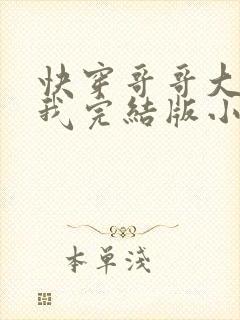 快穿哥哥大
我完結版小
本單淺